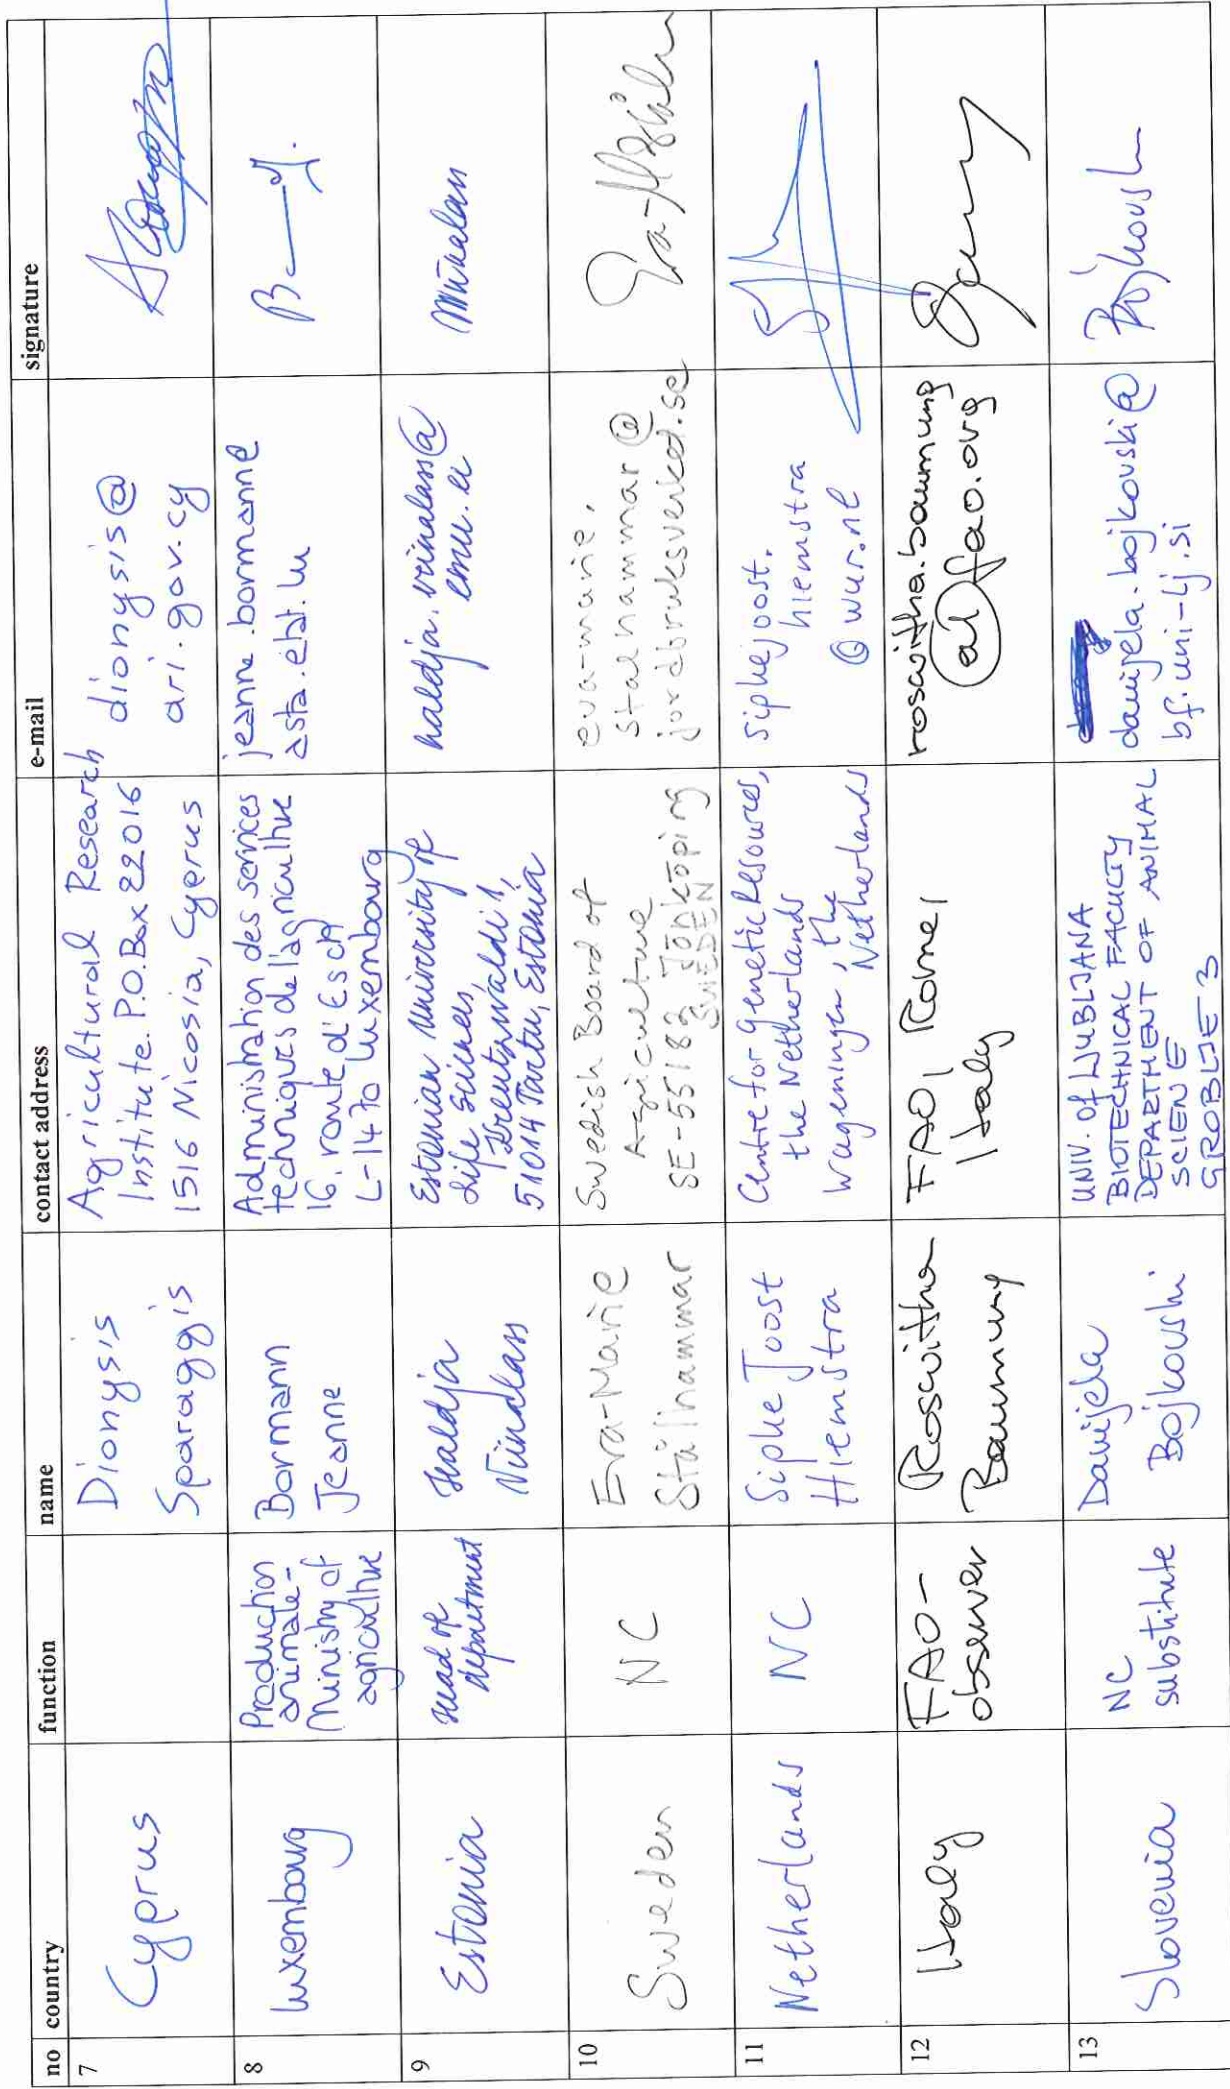 no country function name contact address e-mail signature
7 Cyprus
Dionysis
Sparaggis
Agricultural Research
Institute. P.O.Box 22016
1516 Nicosia, Cyprus
dionysis@
ari.gov.cy
8 Luxembourg
Production
animale -
Ministry of
agriculture
Bormann
Jeanne
Administration des services
techniques de l'agriculture
16, route d'Esch
L-1470 Luxembourg
jeanne.bormann@
asta.etat.lu
9 Estonia
Head of
department
Haldja
Viinalass
Estonian University of
Life Sciences,
Kreutzwaldi 1,
51014 Tartu, Estonia
haldja.viinalass@
emu.ee
10 Sweden
NC
Eva-Marie
Stålhammar
Swedish Board of
Agriculture
SE-55182 Jönköping
SWEDEN
eva-marie.
stalhammar@
jordbruksverket.se
11 Netherlands
NC
Sipke Joost
Hiemstra
Centre for Genetic Resources,
the Netherlands
Wageningen, the
Netherlands
sipkejoost.
hiemstra
@wur.nl
12 Italy
FAO-
observer
Roswitha
Baumung
FAO, Rome,
Italy
roswitha.baumung
at fao.org
13 Slovenia
NC
substitute
Danijela
Bojkovski
UNIV. of LJUBLJANA
BIOTECHNICAL FACULTY
DEPARTMENT OF ANIMAL
SCIENCE
GROBLJE 3
danijela.bojkovski@
bf.uni-lj.si